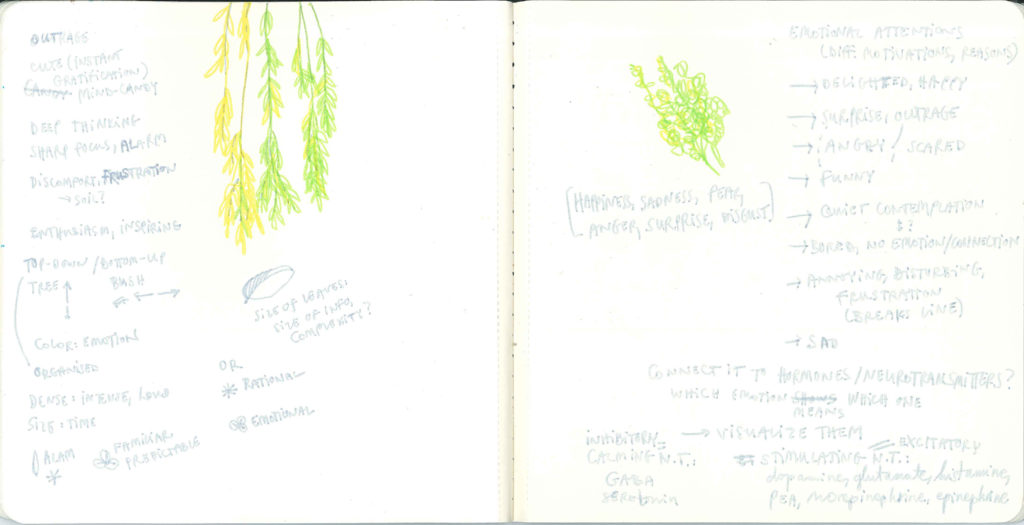 OUTRAGE
CUTE (INSTANT
GRATIFICATION)
CANDY MIND-CANDY
DEEP THINKING
SHARP FOCUS, ALARM
DISCOMFORT, FRUSTRATION
→ SOIL?
ENTHUSIASM, INSPIRING
TOP-DOWN / BOTTOM-UP
TREE BUSH
COLOR: EMOTION
ORGANISED
DENSE: INTENSE, LOUD
SIZE: TIME
ALAM
FAMILIAR
PREDICTABLE
SIZE OF LEAVES:
SIZE OF INFO,
COMPLEXITY?
OR
RATIONAL
EMOTIONAL
[HAPPINESS, SADNESS, FEAR,
ANGER, SURPRISE, DISGUST]
EMOTIONAL ATTENTIONS
(DIFF. MOTIVATIONS, REASONS)
→ DELIGHTED, HAPPY
→ SURPRISE, OUTRAGE
→ ANGRY / SCARED
→ FUNNY
→ QUIET CONTEMPLATION
&?
→ BORED, NO EMOTION/CONNECTION
→ ANNOYING, DISTURBING,
FRUSTRATION
(BREAKS LINE)
→ SAD
CONNECT IT TO HORMONES/NEUROTRANSMITTERS?
WHICH EMOTION SHOWS WHICH ONE
MEANS
→ VISUALIZE THEM
INHIBITORY =
CALMING N.T.:
GABA
serotonin
= EXCITATORY
STIMULATING N.T.:
dopamine, glutamate, histamine,
PEA, norepinephrine, epinephrine